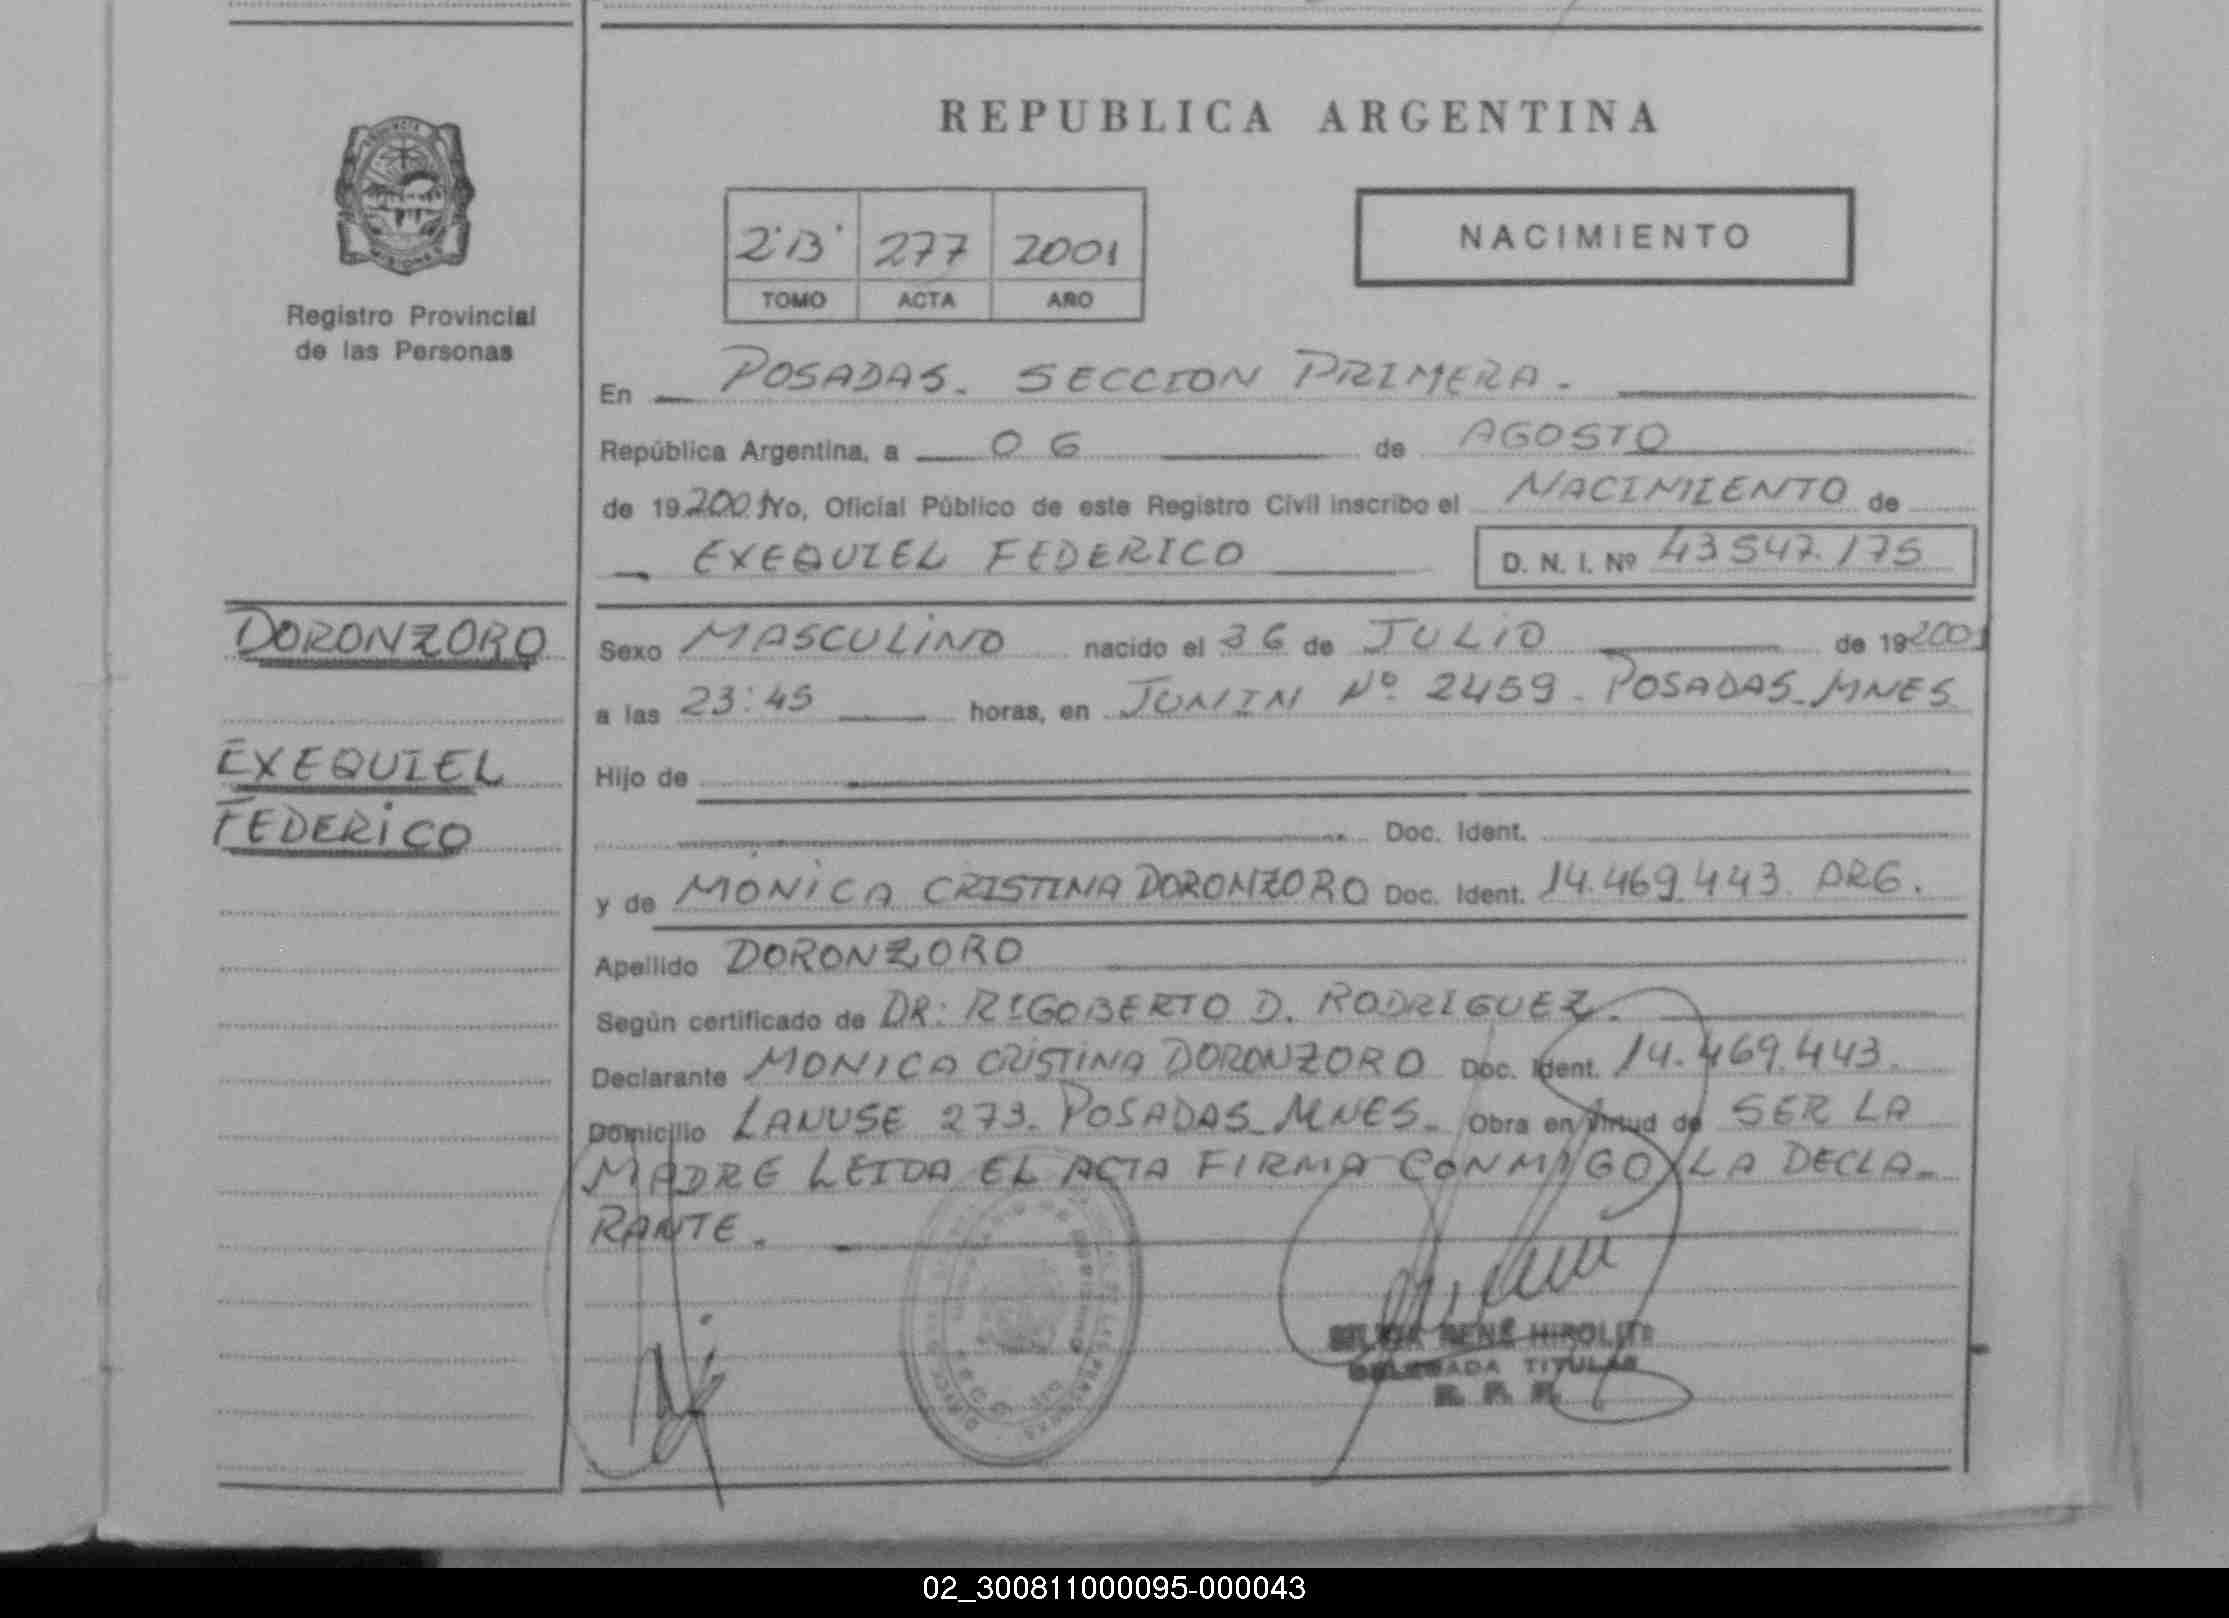 REPUBLICA ARGENTINA
NACIMIENTO
2"B" 277 2001
TOMO ACTA AÑO
Registro Provincial
de las Personas
En POSADAS. SECCION PRIMERA.
República Argentina, a 06 de AGOSTO
de 19 2001 Yo, Oficial Público de este Registro Civil inscribo el NACIMIENTO de
EXEQUIEL FEDERICO D. N. I. Nº 43547.175
DORONZORO
Sexo MASCULINO nacido el 36 de JULIO de 19 2001
a las 23:45 horas, en JUNIN Nº 2459. POSADAS. MNES
EXEQUIEL
FEDERICO
Hijo de
Doc. Ident.
y de MONICA CRISTINA DORONZORO Doc. Ident. 14.469.443. ARG.
Apellido DORONZORO
Según certificado de DR: RIGOBERTO D. RODRIGUEZ.
Declarante MONICA CRISTINA DORONZORO Doc. Ident. 14.469.443.
Domicilio LANUSE 273. POSADAS_MNES. Obra en virtud de SER LA
MADRE LEIDA EL ACTA FIRMA CONMIGO LA DECLA-
RANTE.
RENE HIPOLITE
DELEGADA TITULAR
02_300811000095-000043